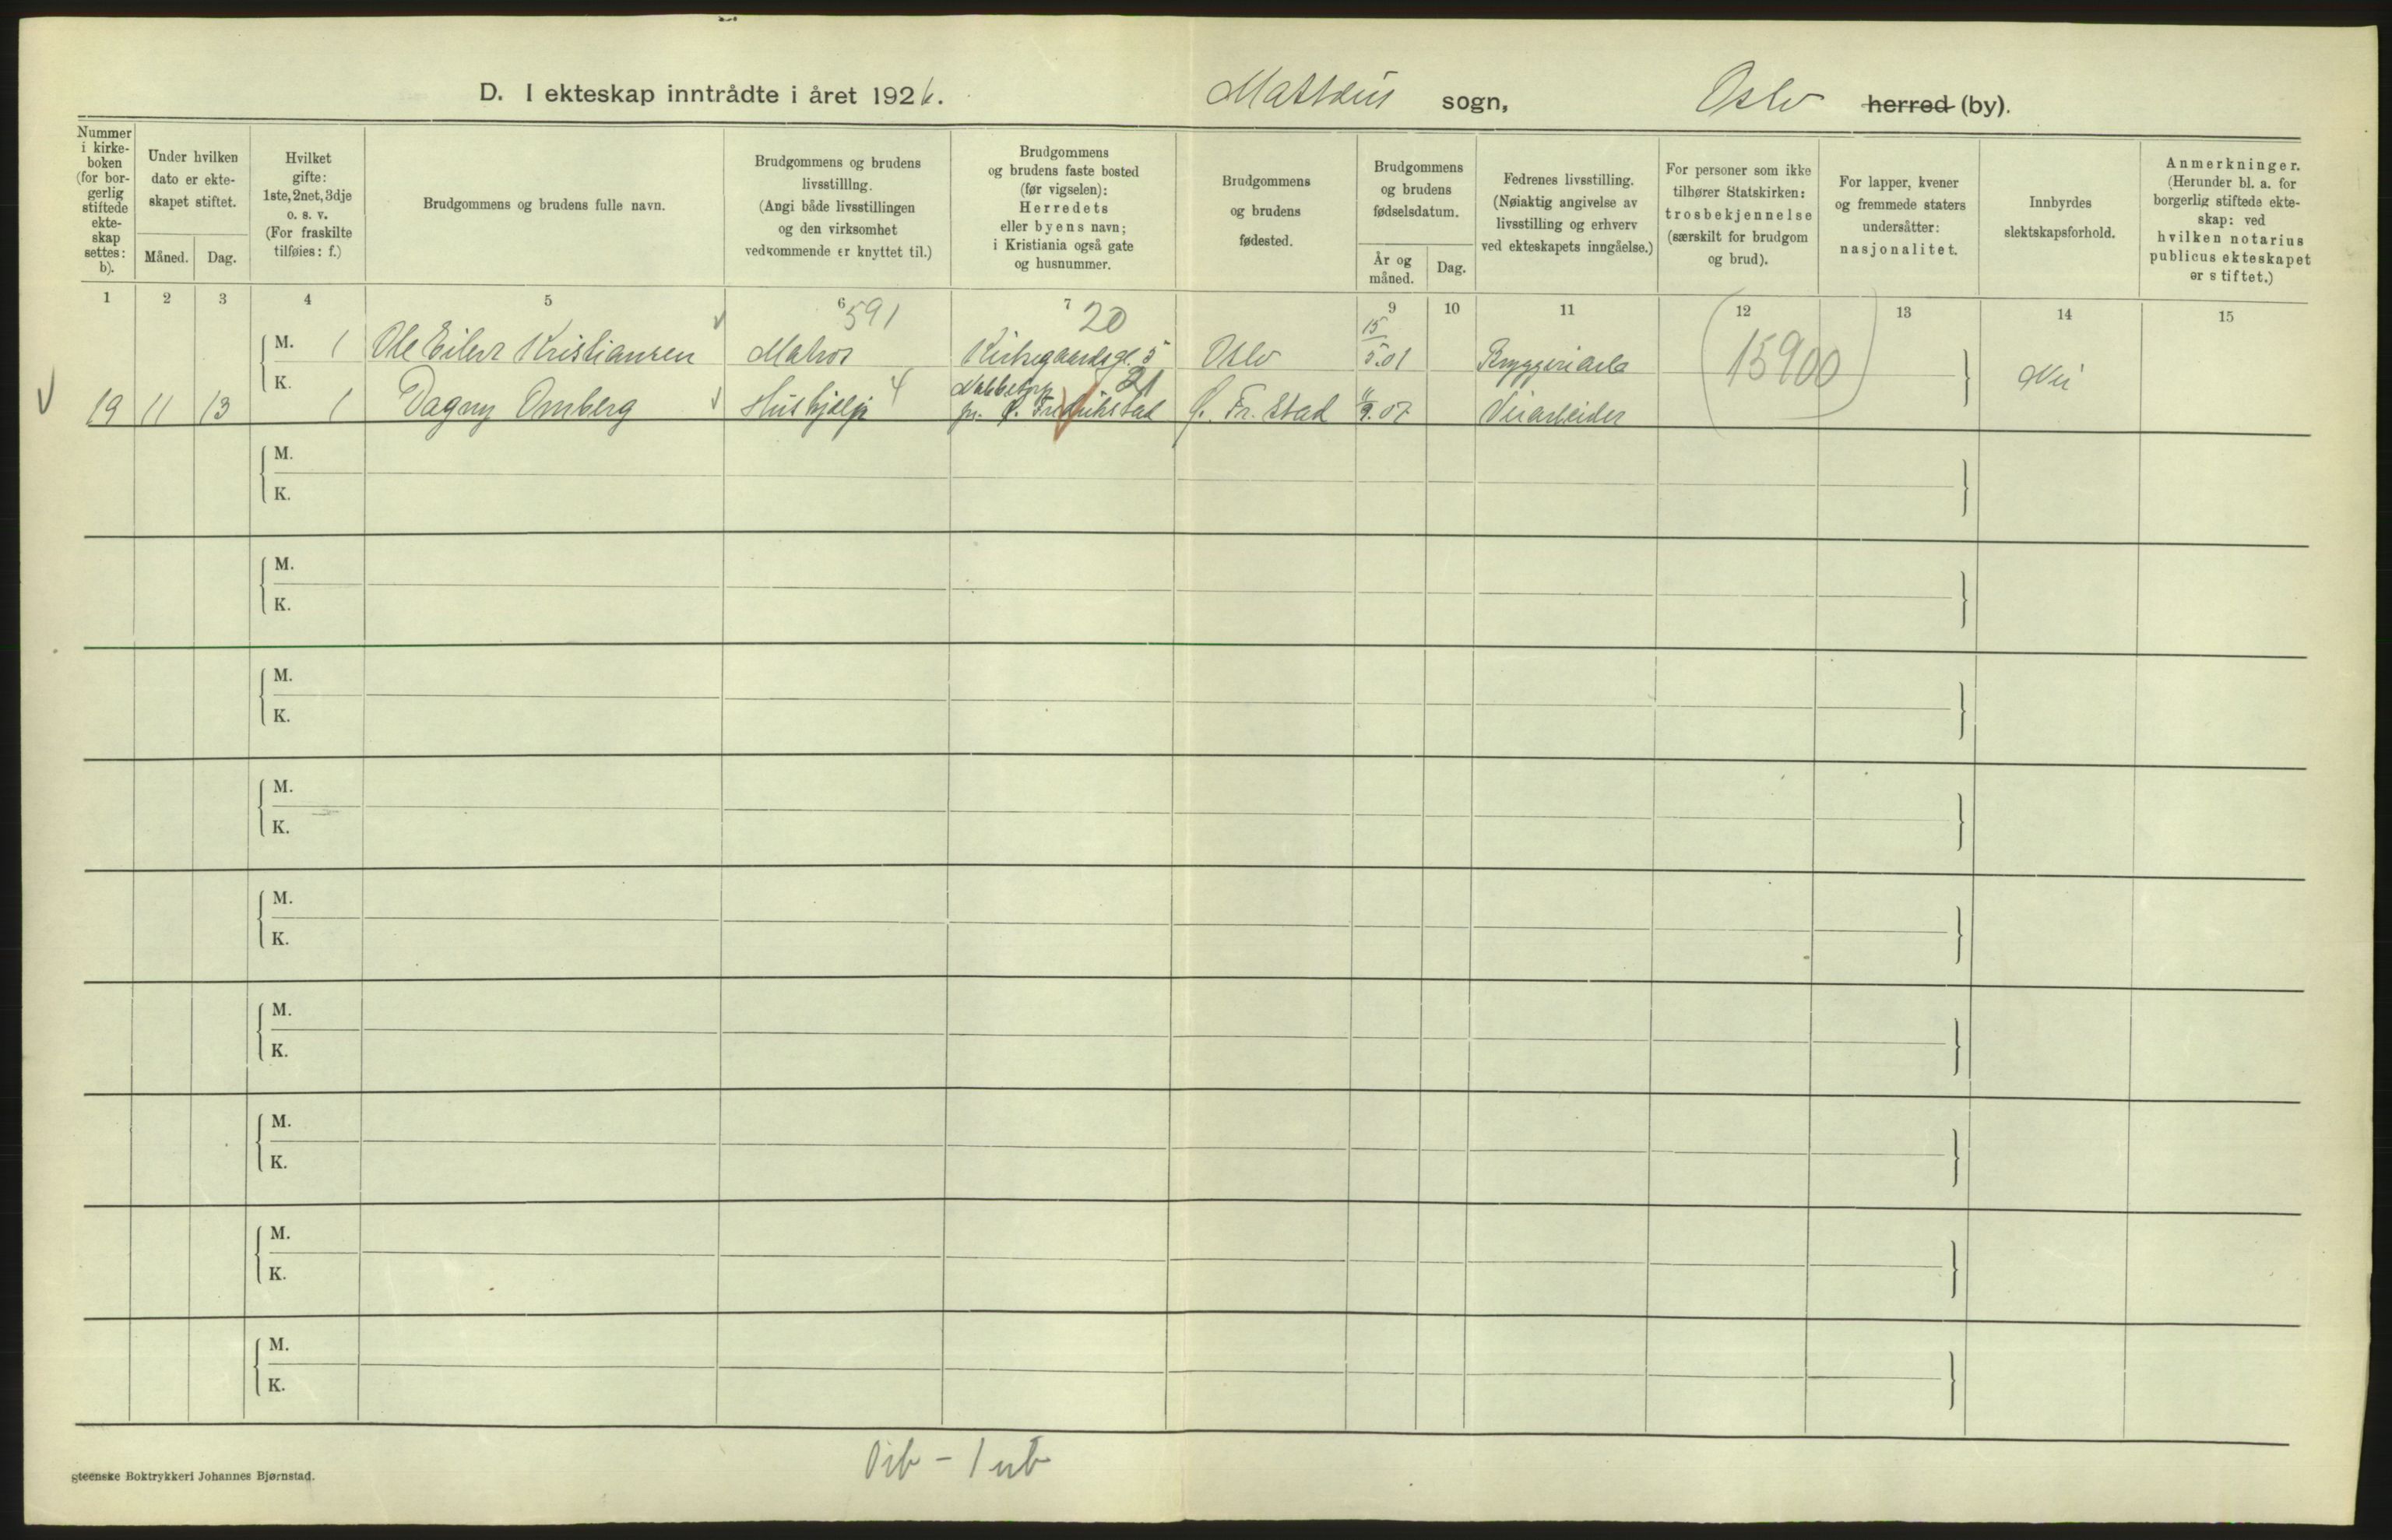 D. I ekteskap inntrådte i året 1926. Mattæus sogn, Oslo herred (by).
Nummer i kirke-boken (for bor-gerlig stiftede ekte-skap settes: b).
Under hvilken dato er ekte-skapet stiftet.
Måned. Dag.
Hvilket gifte: 1ste, 2net, 3dje o. s. v. (For fraskilte tilføies: f.)
Brudgommens og brudens fulle navn.
Brudgommens og brudens livsstilling. (Angi både livsstillingen og den virksomhet vedkommende er knyttet til.)
Brudgommens og brudens faste bosted (før vigselen): Herredets eller byens navn; i Kristiania også gate og husnummer.
Brudgommens og brudens fødested.
Brudgommens og brudens fødselsdatum.
År og måned. Dag.
Fedrenes livsstilling. (Nøiaktig angivelse av livsstilling og erhverv ved ekteskapets inngåelse.)
For personer som ikke tilhører Statskirken: trosbekjennelse (særskilt for brudgom og brud).
For lapper, kvener og fremmede staters undersåtter: nasjonalitet.
Innbyrdes slektskapsforhold.
Anmerkninger. (Herunder bl. a. for borgerlig stiftede ekte-skap: ved hvilken notarius publicus ekteskapet er stiftet.)
1 2 3 4 5 6 7 9 10 11 12 13 14 15
591 20
M. 1 Ole Eilert Kristiansen Matros Kirkegaardsgt. 5 Oslo 15/5.01 Bryggeriarb (15900) Nei
21
19 11 13 K. 1 Dagny Omberg Hushjelp 4 pr. Ø. Fredrikstad Ø. Fr. stad 11/9.07 Veiarbeider
M.
K.
M.
K.
M.
K.
M.
K.
M.
K.
M.
K.
M.
K.
M.
K.
M.
K.
steenske Boktrykkeri Johannes Bjørnstad.